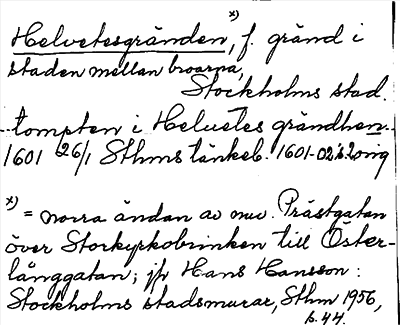 Helvetesgränden, x) f. gränd i
staden mellan broarna,
Stockholms stad.
..tompten i Helvetes grändhen..
1601 26/1 Sthms tänkeb. 1601-02 s. 2 orig
x) = norra ändan av nuv. Prästgatan
över Storkyrkobrinken till Öster-
långgatan; jfr Hans Hansson:
Stockholms stadsmurar, Sthm 1956,
s. 44.